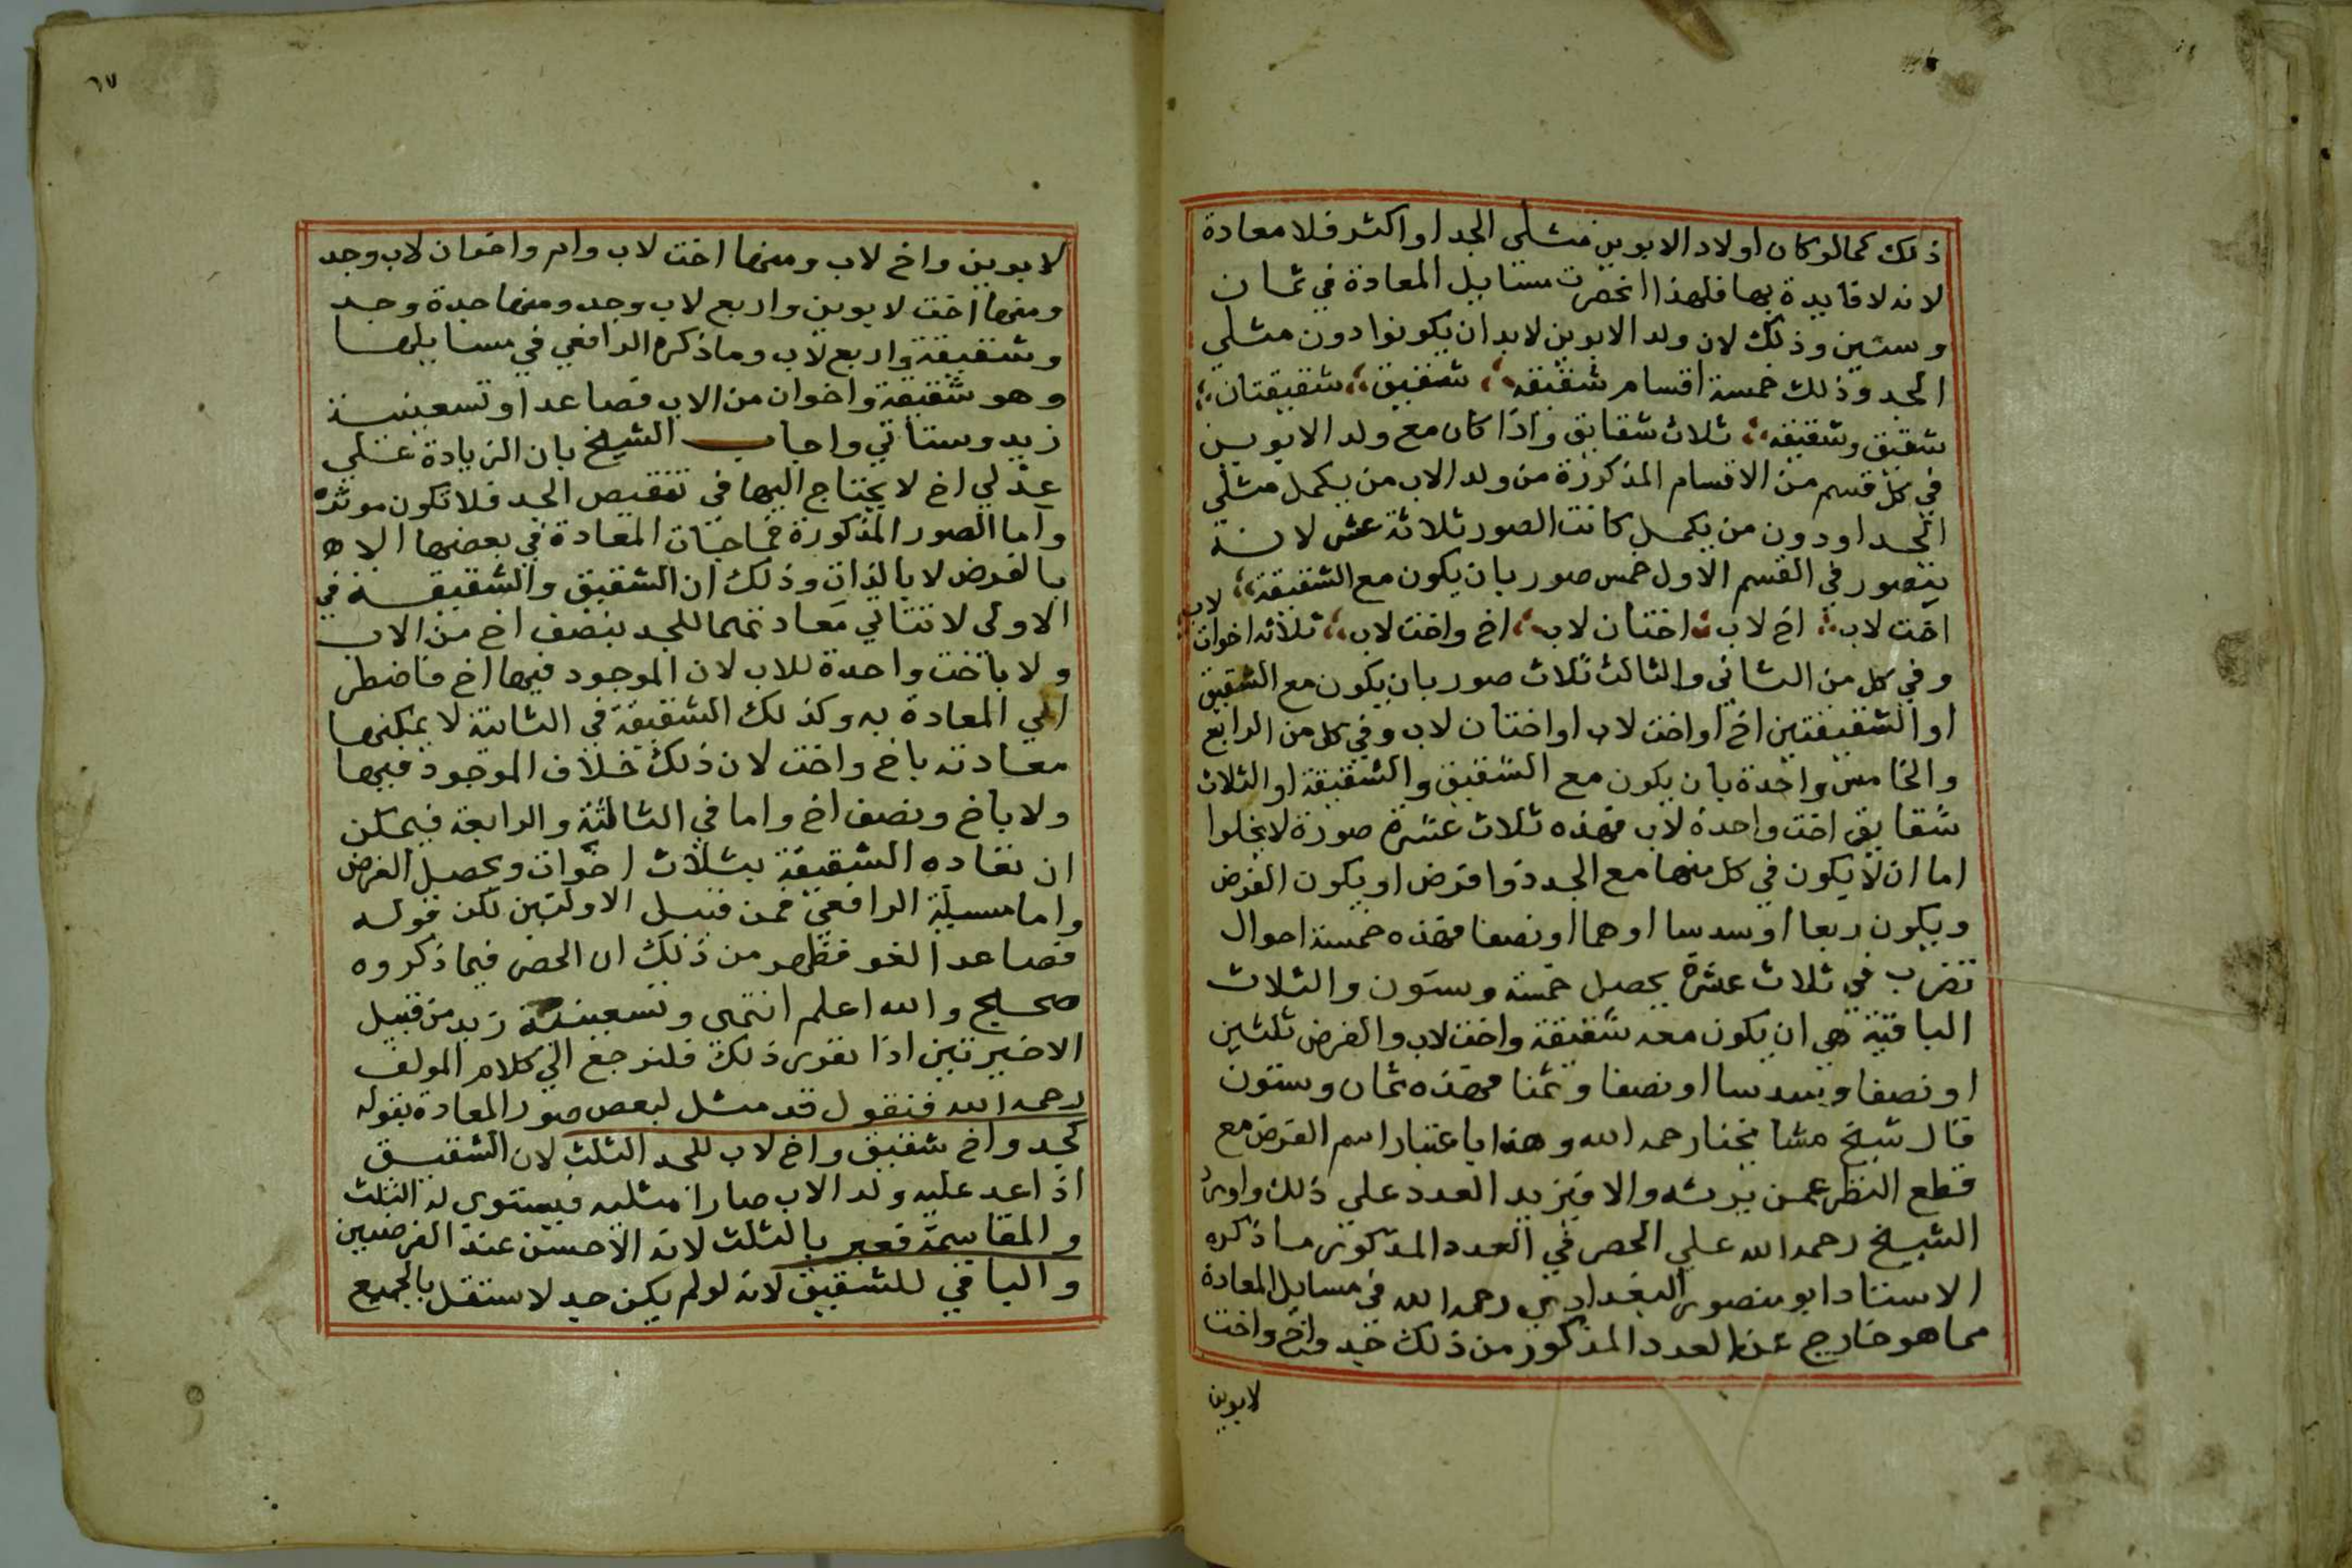 ذلك كما لو كان اولاد الابوين مثلي الجد او اكثر فلا معادة
لانه لا فايدة بها فلهذا انحصرت مسايل المعادة في ثمان
وستين وذلك لان ولد الابوين لابد ان يكونوا دون مثلي
الجد وذلك خمسة اقسام شقيقه شقيق شقيقتان
شقيق وشقيقه ثلاث شقايق واذا كان مع ولد الابوين
في كل قسم من الاقسام المذكورة من ولد الاب من يكمل مثلي
الجد او دون من يكمل كانت الصور ثلاثة عشر لانه
يتصور في القسم الاول خمس صور بان يكون مع الشقيقة
اخت لاب اخ لاب اختان لاب اخ واخت لاب ثلاثه اخوات لاب
وفي كل من الثاني والثالث ثلاث صور بان يكون مع الشقيق
او الشقيقتين اخ او اخت لاب او اختان لاب وفي كل من الرابع
والخامس واحدة بان يكون مع الشقيق والشقيقة او الثلاث
شقايق اخت واحدة لاب فهذه ثلاث عشرة صورة لا يخلوا
اما ان لا يكون في كل منها مع الجد ذوا فرض او يكون الفرض
ويكون ربعا او سدسا او هما او نصفا فهذه خمسة احوال
تضرب في ثلاث عشرة يحصل خمسة وستون والثلاث
الباقية هي ان يكون معه شقيقة واخت لاب والفرض ثلثين
او نصفا وسدسا او نصفا وثمنا فهذه ثمان وستون
قال شيخ مشايخنا رحمه الله وهذا باعتبار اسم الفرض مع
قطع النظر عمن يرثه والا فيزيد العدد علي ذلك واورد
الشيخ رحمه الله علي الحصر في العدد المذكور ما ذكره
الاستاد ابو منصور البغدادي رحمه الله في مسايل المعادة
مما هو خارج عن العدد المذكور من ذلك جد واخ واخت
لابوين
٦٧
لابوين واخ لاب ومنها اخت لاب وام واخوان لاب وجد
ومنها اخت لابوين واربع لاب وجد ومنها جدة وجد
وشقيقة واربع لاب وما ذكره الرافعي في مسايلها
وهو شقيقة واخوان من الاب فصاعدا وتسعينية
زيد وستاتي واجاب الشيخ بان الزيادة علي
عدلي اخ لا يحتاج اليها في تنقيص الجد فلا تكون موثره
واما الصور المذكورة فماجات المعادة في بعضها الا
بالفرض لا بالذات وذلك ان الشقيق والشقيقة في
الاولى لا تتاتي معادتهما للجد بنصف اخ من الاب
ولا باخت واحدة للاب لان الموجود فيها اخ فاضطر
الي المعادة به وكذلك الشقيقة في الثانية لا يمكنها
معادته باخ واخت لان ذلك خلاف الموجود فيها
ولا باخ ونصف اخ واما في الثالثة والرابعة فيمكن
ان تعاده الشقيقة بثلاث اخوات ويحصل الغرض
واما مسيلة الرافعي فمن قبيل الاولتين لكن قوله
فصاعدا لغو فظهر من ذلك ان الحصر فيما ذكروه
صحيح والله اعلم انتهى وتسعينية زيد من قبيل
الاخيرتين اذا تقرر ذلك فلنرجع الي كلام المولف
رحمه الله فنقول قد مثل لبعض صور المعادة بقوله
كجد واخ شقيق واخ لاب للجد الثلث لان الشقيق
اذا عد عليه ولد الاب صارا مثليه فيستوي له الثلث
والمقاسمة فعبر بالثلث لانه الاحسن عند الفرضيين
والباقي للشقيق لانه لو لم يكن جد لاستقل بالجميع